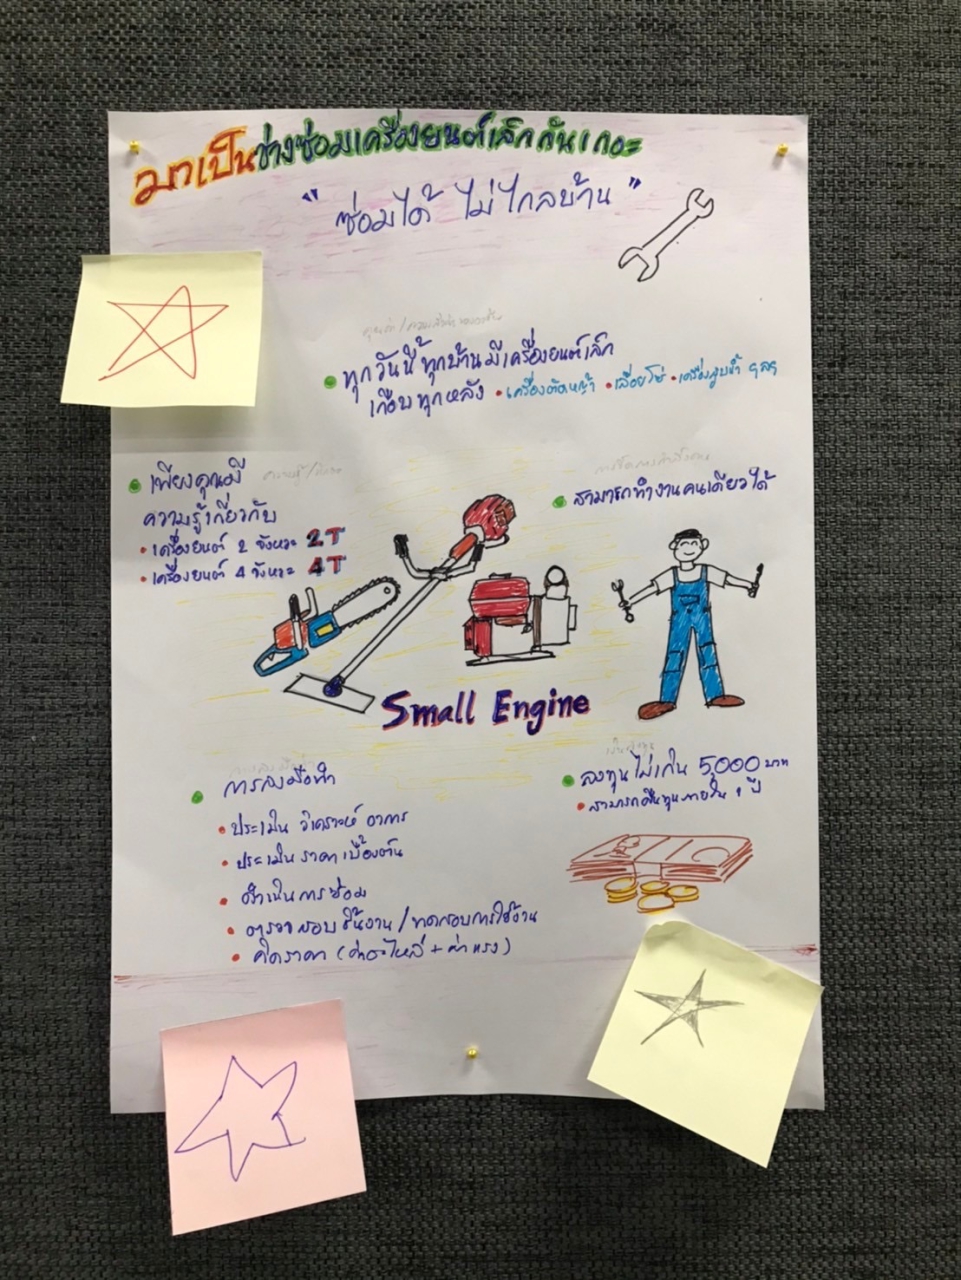 มาเป็นช่างซ่อมเครื่องยนต์เล็กกันเถอะ
"ซ่อมได้ ไม่ไกลบ้าน"
ทุกวันนี้ ทุกบ้านมีเครื่องยนต์เล็ก
เกือบทุกหลัง • เครื่องตัดหญ้า • เลื่อยโซ่ • เครื่องสูบน้ำ ฯลฯ
• เพียงคุณมี
ความรู้เกี่ยวกับ
• เครื่องยนต์ 2 จังหวะ 2T
• เครื่องยนต์ 4 จังหวะ 4T
• สามารถทำงานคนเดียวได้
Small Engine
• การลงมือทำ
• ประเมิน วิเคราะห์ อาการ
• ประเมิน ราคาเบื้องต้น
• ดำเนินการซ่อม
• ตรวจสอบชิ้นงาน / ทดสอบการใช้งาน
• คิดราคา (ค่าอะไหล่ + ค่าแรง)
• ลงทุนไม่เกิน 5,000 บาท
• สามารถคืนทุนภายใน 1 ปี